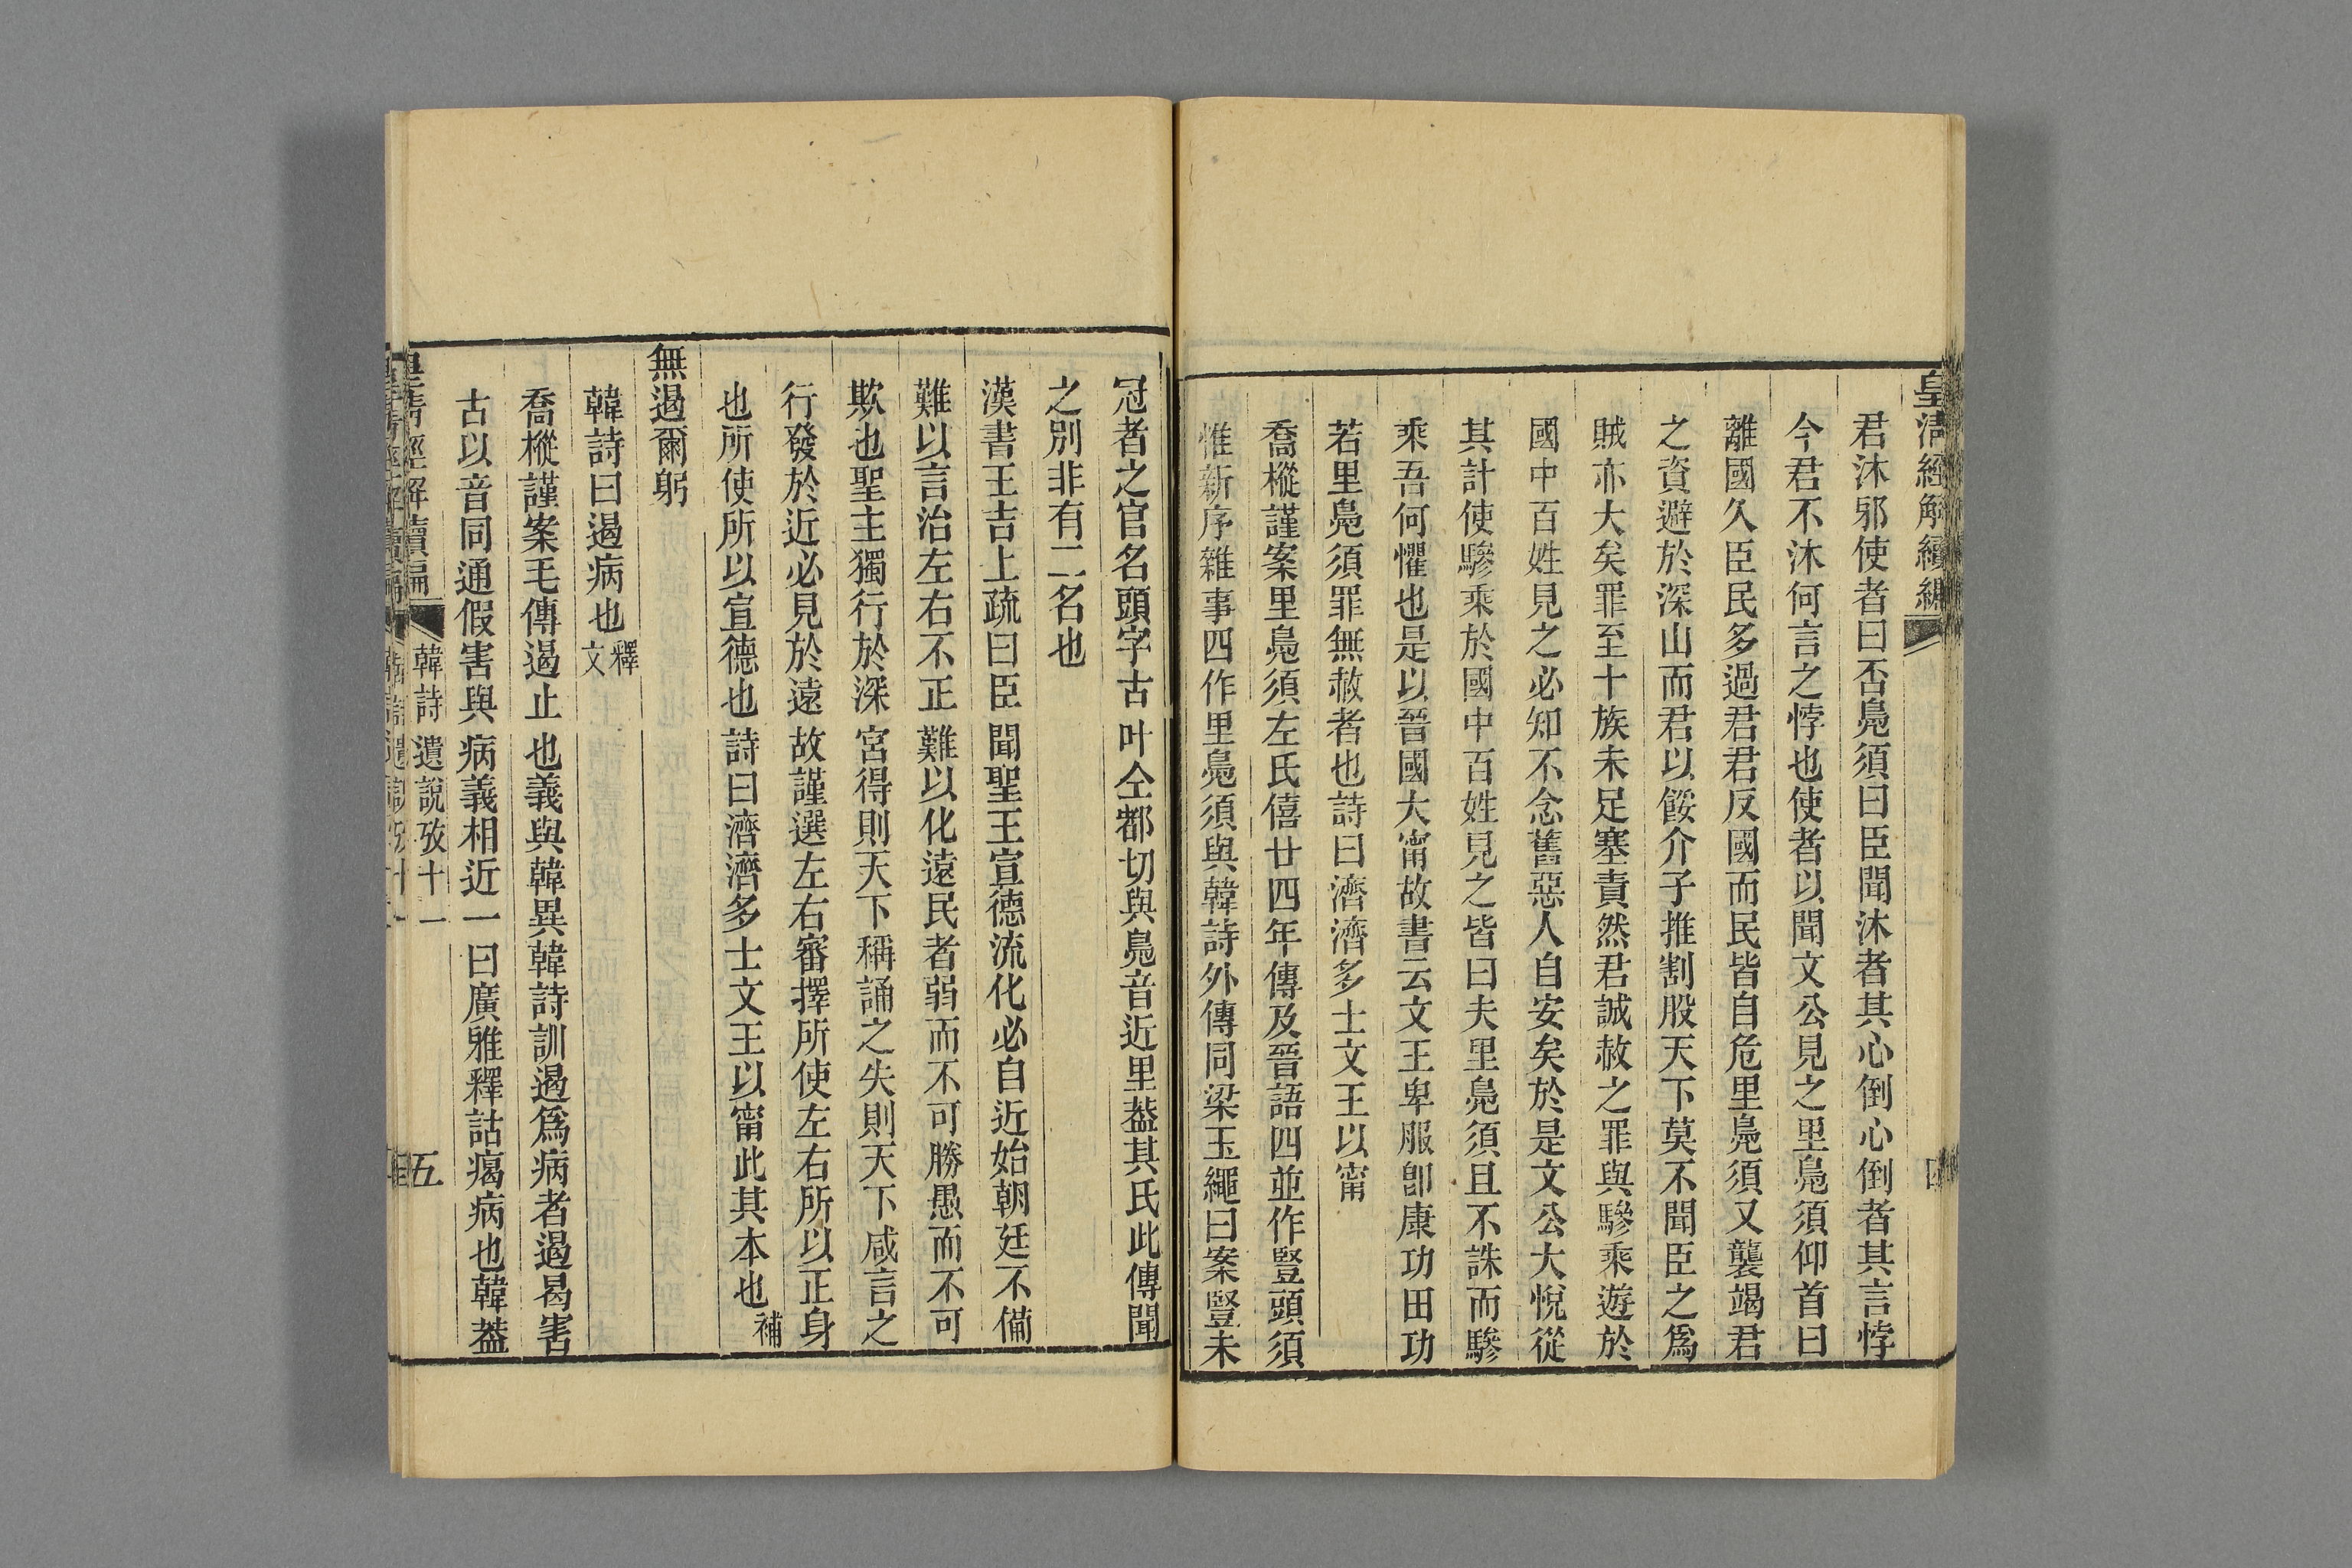 皇清經解續編
四
君沐邪使者曰否鳧須曰臣聞沐者其心倒心倒者其言悖
今君不沐何言之悖也使者以聞文公見之里鳧須仰首曰
離國久臣民多過君君反國而民皆自危里鳧須又襲竭君
之資避於深山而君以餒介子推割股天下莫不聞臣之爲
賊亦大矣罪至十族未足塞責然君誠赦之罪與驂乘遊於
國中百姓見之必知不念舊惡人自安矣於是文公大悅從
其計使驂乘於國中百姓見之皆曰夫里鳧須且不誅而驂
乘吾何懼也是以晉國大甯故書云文王卑服卽康功田功
若里鳧須罪無赦者也詩曰濟濟多士文王以甯
喬樅謹案里鳧須左氏僖廿四年傳及晉語四並作豎頭須
惟新序雜事四作里鳧須與韓詩外傳同梁玉繩曰案豎未
冠者之官名頭字古叶仝都切與鳧音近里葢其氏此傳聞
之別非有二名也
漢書王吉上疏曰臣聞聖王宣德流化必自近始朝廷不備
難以言治左右不正難以化遠民者弱而不可勝愚而不可
欺也聖主獨行於深宮得則天下稱誦之失則天下咸言之
行發於近必見於遠故謹選左右審擇所使左右所以正身
也所使所以宣德也詩曰濟濟多士文王以甯此其本也補
無遏爾躬
韓詩曰遏病也釋文
喬樅謹案毛傳遏止也義與韓異韓詩訓遏爲病者遏曷害
古以音同通假害與病義相近一曰廣雅釋詁瘍病也韓葢
皇清經解續編
韓詩遺說攷十一
五